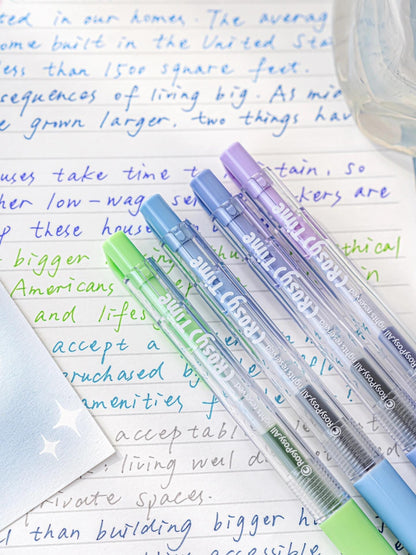 ted in our homes. The averag
ome built in the United Sta
less than 1500 square feet.
sequences of living big. As mid
e grown larger, two things hav
uses take time t tain, so
her low-wag se kers are
g these hous
bigger thical
Americans n
and lifes
accept a
puruchased b
amenities f
acceptabl
living well d
private spaces.
l than building bigger h
accessible
(Rosy) Time
(Rosy) Time
(Rosy) Time
(Rosy) Time
©RosyPosy.All
©RosyPosy.All
©RosyPosy.All
©RosyPosy.All